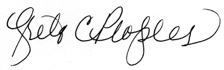 Greta C Peoples